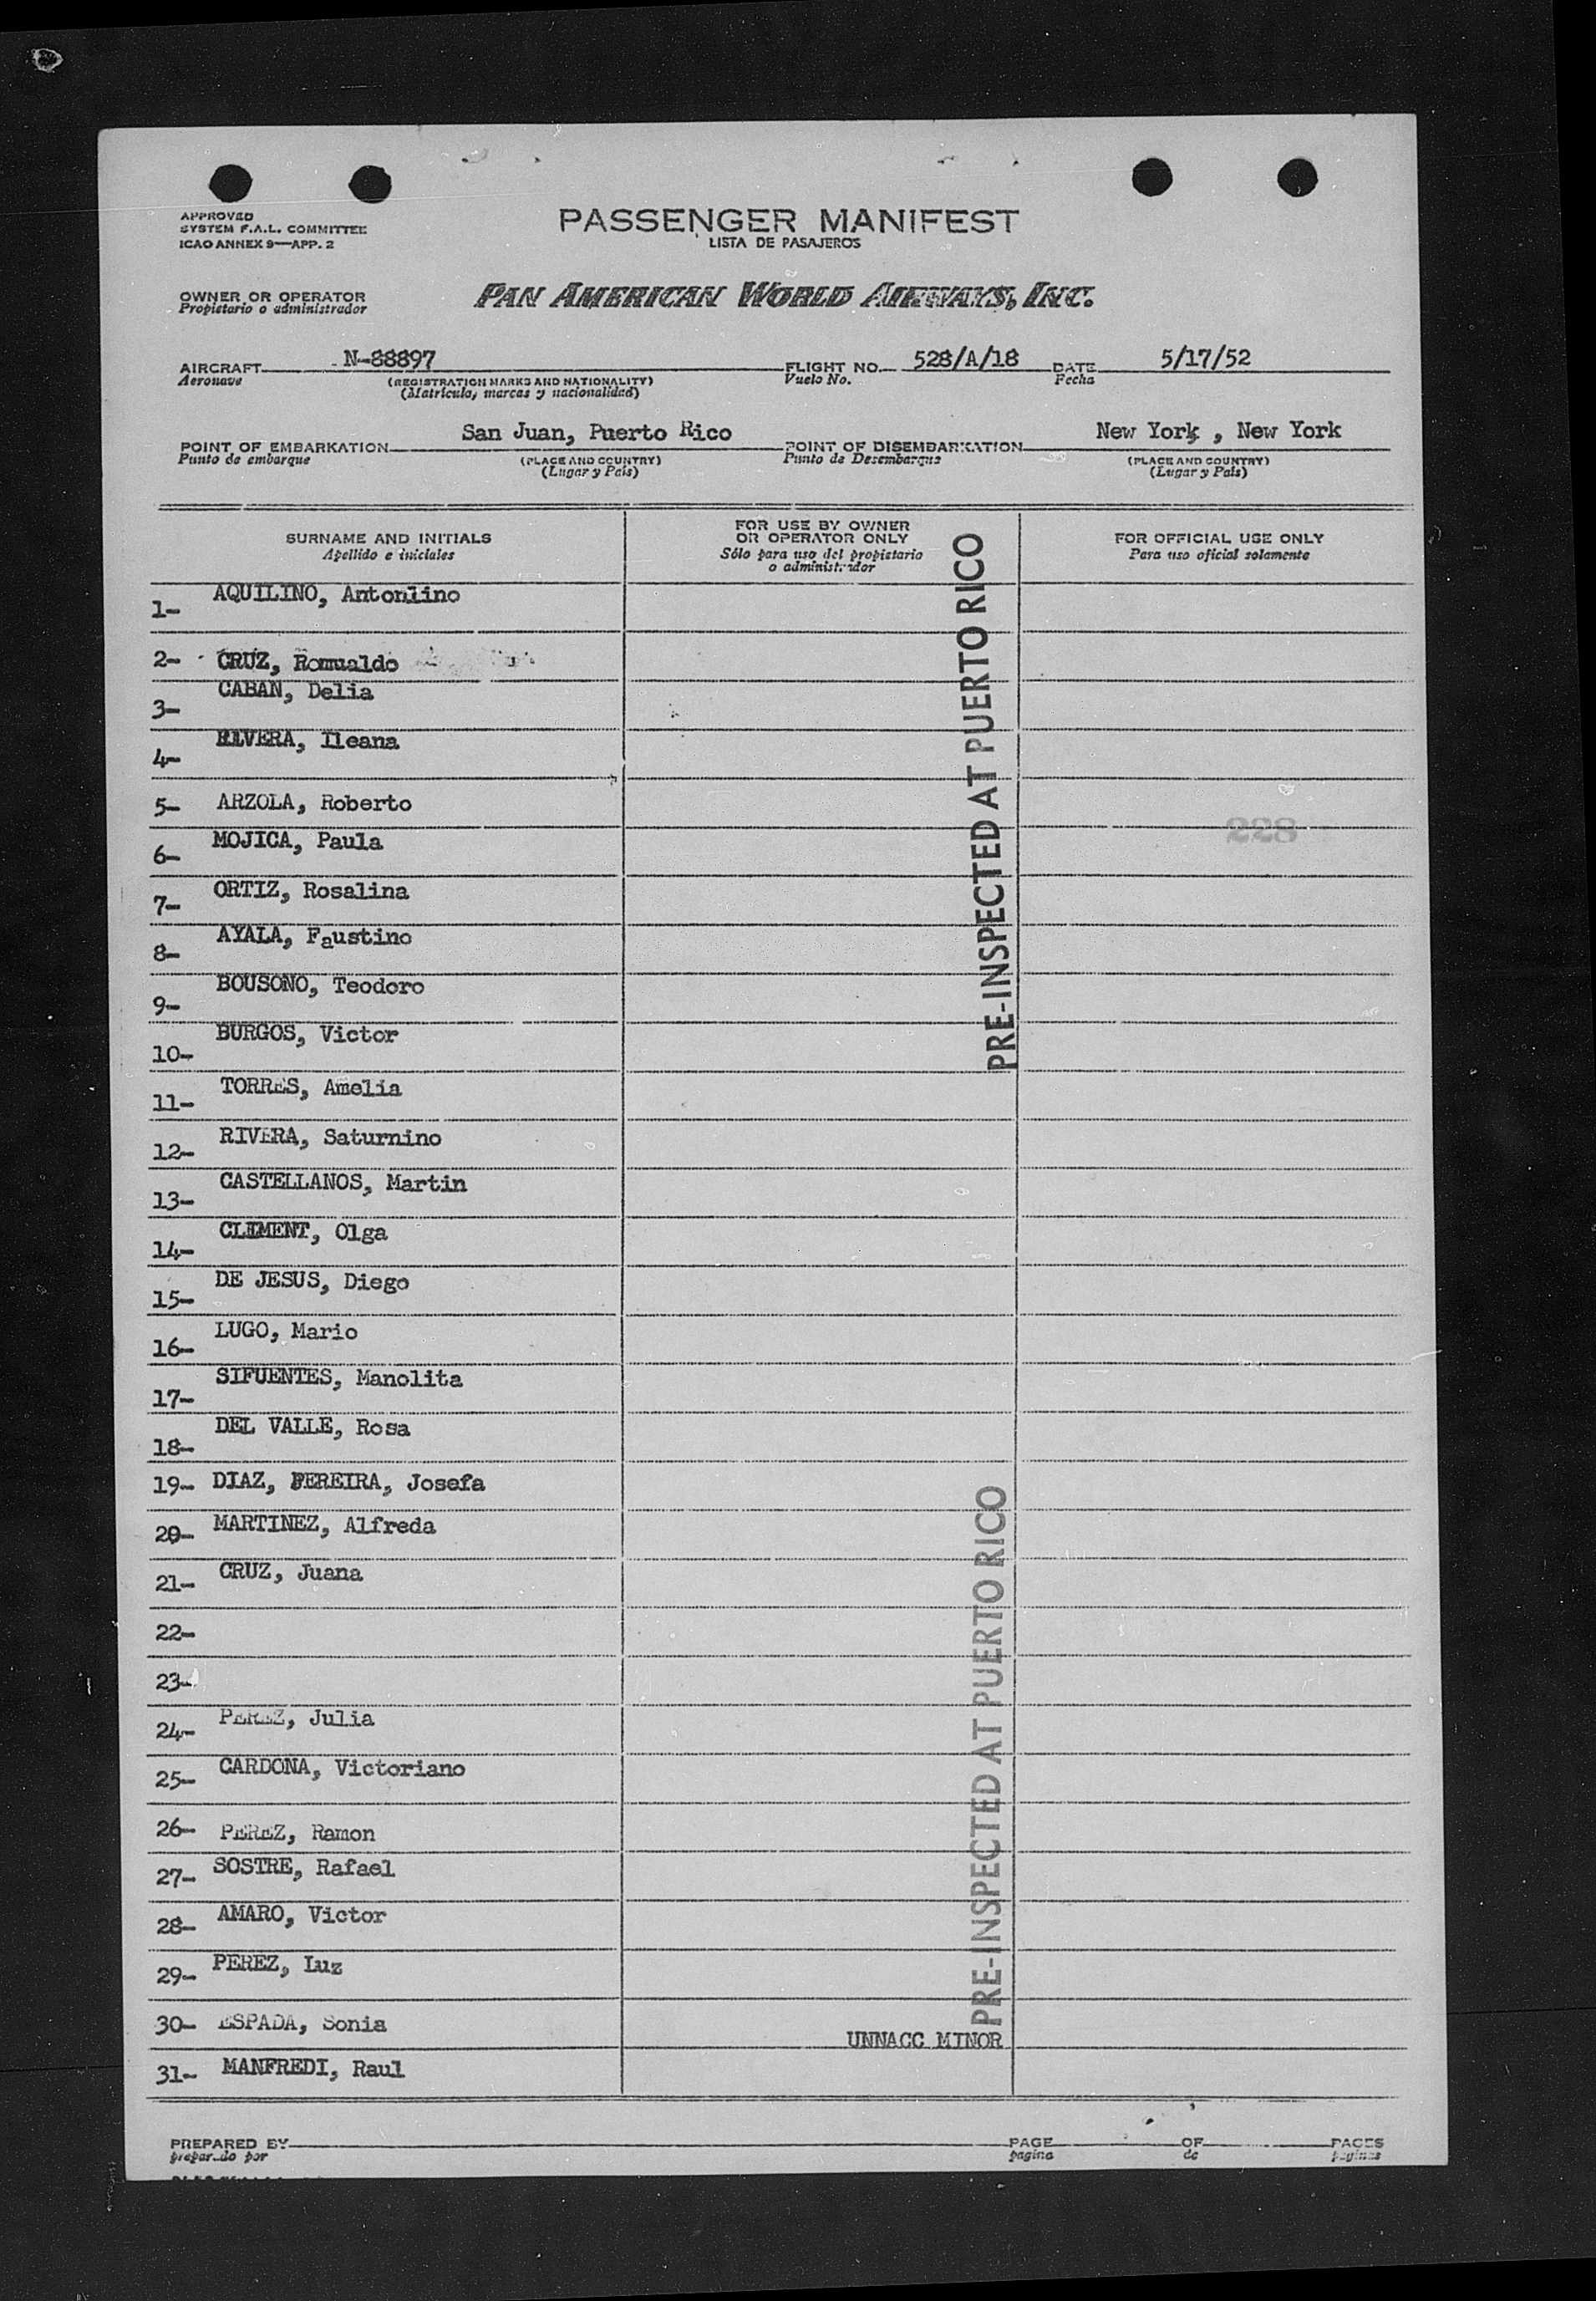 APPROVED
SYSTEM F.A.L. COMMITTEE
ICAO ANNEX 9—APP. 2
PASSENGER MANIFEST
LISTA DE PASAJEROS
OWNER OR OPERATOR
Propietario o administrador
PAN AMERICAN WORLD AIRWAYS, INC.
AIRCRAFT N-88897 FLIGHT NO. 528/A/18 DATE 5/17/52
Aeronave (REGISTRATION MARKS AND NATIONALITY) Vuelo No. Fecha
(Matrícula, marcas y nacionalidad)
POINT OF EMBARKATION San Juan, Puerto Rico POINT OF DISEMBARKATION New York, New York
Punto de embarque (PLACE AND COUNTRY) Punto de Desembarque (PLACE AND COUNTRY)
(Lugar y País) (Lugar y País)
SURNAME AND INITIALS
Apellido e iniciales
FOR USE BY OWNER
OR OPERATOR ONLY
Sólo para uso del propietario
o administrador
FOR OFFICIAL USE ONLY
Para uso oficial solamente
1- AQUILINO, Antonlino
2- CRUZ, Romualdo
3- CABAN, Delia
4- RIVERA, Ileana
5- ARZOLA, Roberto
6- MOJICA, Paula
228
7- ORTIZ, Rosalina
8- AYALA, Faustino
9- BOUSONO, Teodoro
10- BURGOS, Victor
PRE-INSPECTED AT PUERTO RICO
11- TORRES, Amelia
12- RIVERA, Saturnino
13- CASTELLANOS, Martin
14- CLIMENT, Olga
15- DE JESUS, Diego
16- LUGO, Mario
17- SIFUENTES, Manolita
18- DEL VALLE, Rosa
19- DIAZ, PEREIRA, Josefa
20- MARTINEZ, Alfreda
21- CRUZ, Juana
22-
23-
24- PEREZ, Julia
25- CARDONA, Victoriano
26- PEREZ, Ramon
27- SOSTRE, Rafael
28- AMARO, Victor
29- PEREZ, Luz
30- ESPADA, Sonia
PRE-INSPECTED AT PUERTO RICO
UNNACC MINOR
31- MANFREDI, Raul
PREPARED BY PAGE OF PAGES
preparado por pagina de paginas